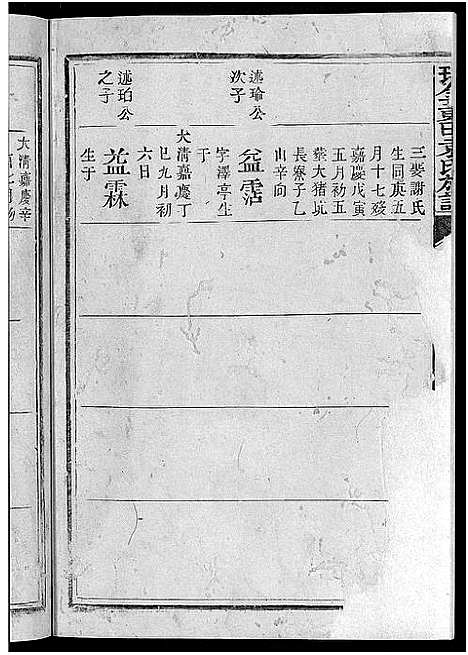 三娶謝氏
生同庚五
月十七發
嘉慶戊寅
五月初五
葉大猪坑
長寮子乙
山辛向
述瑜公
次子
益霑
字澤亭生
于
大清嘉慶丁
巳九月初
六日
述珀公
之子
益霖
生于
大清嘉慶辛